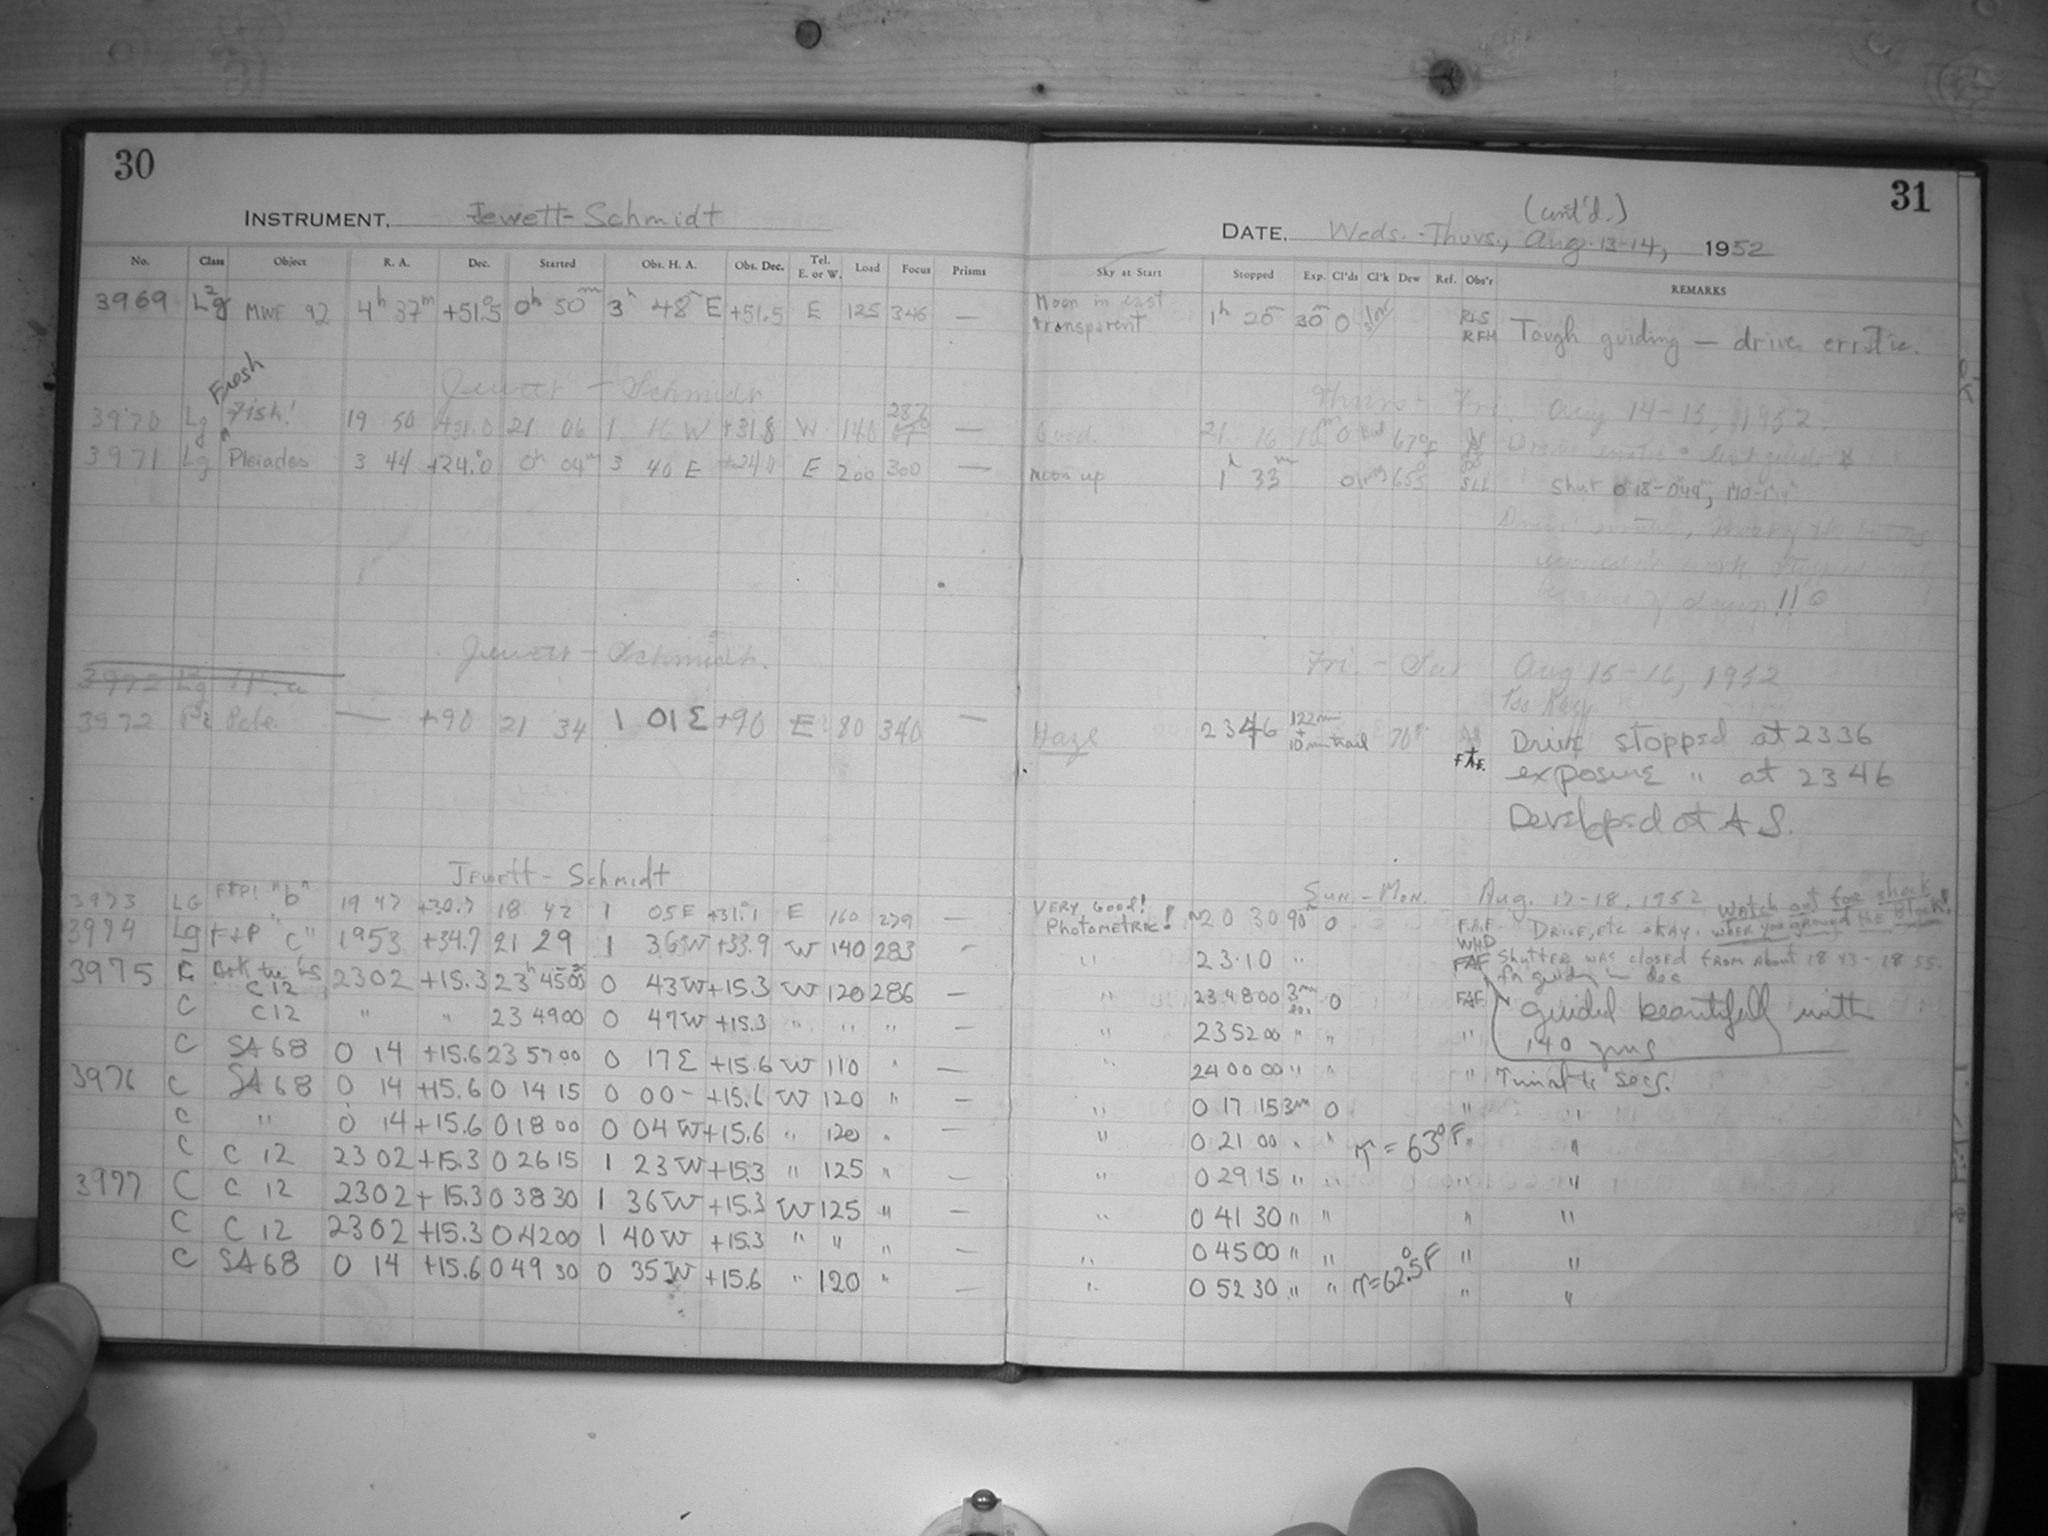 30
INSTRUMENT. Jewett-Schmidt
No. Class Object R. A. Dec. Started Obs. H. A. Obs. Dec. Tel. E. or W. Load Focus Prisms
3969 MWF 92 4h 37m +51.5 0h 50m 3h 48m E +51.5 E 125 346 —
Jewett - Schmidt
Fresh
3970 Lg Fish! 19 50 +31.0 21 06 1 16 W +31.8 W 140 —
3971 Lg Pleiades 3 44 +24.0 0h 04m 3 40 E +24.0 E 200 300 —
Jewett - Schmidt
3972 Pole — +90 21 34 1 01E +90 E 80 340 —
Jewett - Schmidt
3973 LG "b" 19 47 +30.7 18 42 1 05E +31.1 E 160 279 —
3974 Lg FTP "C" 1953 +34.7 21 29 1 36W +33.9 W 140 283 -
3975 C C12 2302 +15.3 23h 45 00 0 43W +15.3 W 120 286 —
C C12 " " 23 49 00 0 47W +15.3 " " " —
C SA 68 0 14 +15.6 23 57 00 0 17E +15.6 W 110 " —
3976 C SA 68 0 14 +15.6 0 14 15 0 00 - +15.6 W 120 " —
C " 0 14 +15.6 0 18 00 0 04 W +15.6 " 120 " —
C C 12 23 02 +15.3 0 26 15 1 23W +15.3 " 125 " —
3977 C C 12 2302 +15.3 0 38 30 1 36W +15.3 W 125 " —
C C 12 2302 +15.3 0 42 00 1 40W +15.3 " " " —
C SA68 0 14 +15.6 0 49 30 0 35W +15.6 " 120 " —
31
(cont'd.)
DATE. Weds. - Thurs., Aug. 13-14, 1952
Sky at Start Stopped Exp. Cl'ds Cl'k Dew Ref. Obs'r REMARKS
Moon in east
transparent 1h 20m 30m 0 slow RLS RFH Tough guiding — drive erratic.
Thurs - Fri Aug 14-15, 1952.
Good. 21 16 10m 0 67°F
moon up 1h 33m SLL Shut 0 18-044,
because of dawn!!
Fri. - Sat Aug 15-16, 1952
Too hazy
Haze 2346 122min + 10 min trail 70° FAF. Drive stopped at 2336
exposure " at 2346
Developed at A S.
Sun. - Mon. Aug. 17-18, 1952 Watch out for shock when you ground the block!
VERY GOOD! PHOTOMETRIC! ~20 30 90m 0 F.A.F. WHD DRIVE, ETC OKAY.
" 23 10 " FAF Shutter was closed from about 18 43 - 18 55.
for guiding in dec
" 23 48 00 3m 0 FAF guided beautifully with
" 23 52 00 " " " 140 gms
" 24 00 00 " " " Timed to secs.
" 0 17 15 3m 0 " "
" 0 21 00 " " T = 63°F " "
" 0 29 15 " " " "
" 0 41 30 " " " "
0 45 00 " " " "
" 0 52 30 " " T=62.5°F " "